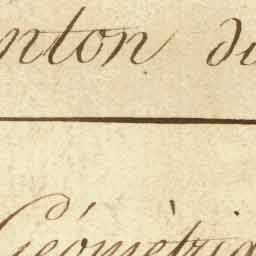 nton du
Géométriq